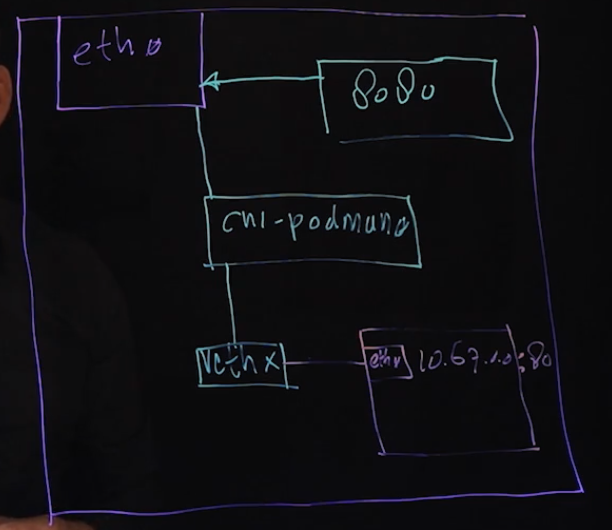 eth0
8080
cni-podman0
vethx
eth0 10.67.1.0:80